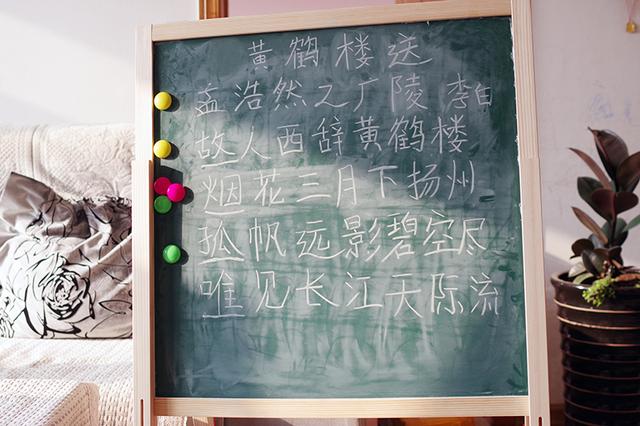 黄鹤楼送
孟浩然之广陵 李白
故人西辞黄鹤楼
烟花三月下扬州
孤帆远影碧空尽
唯见长江天际流